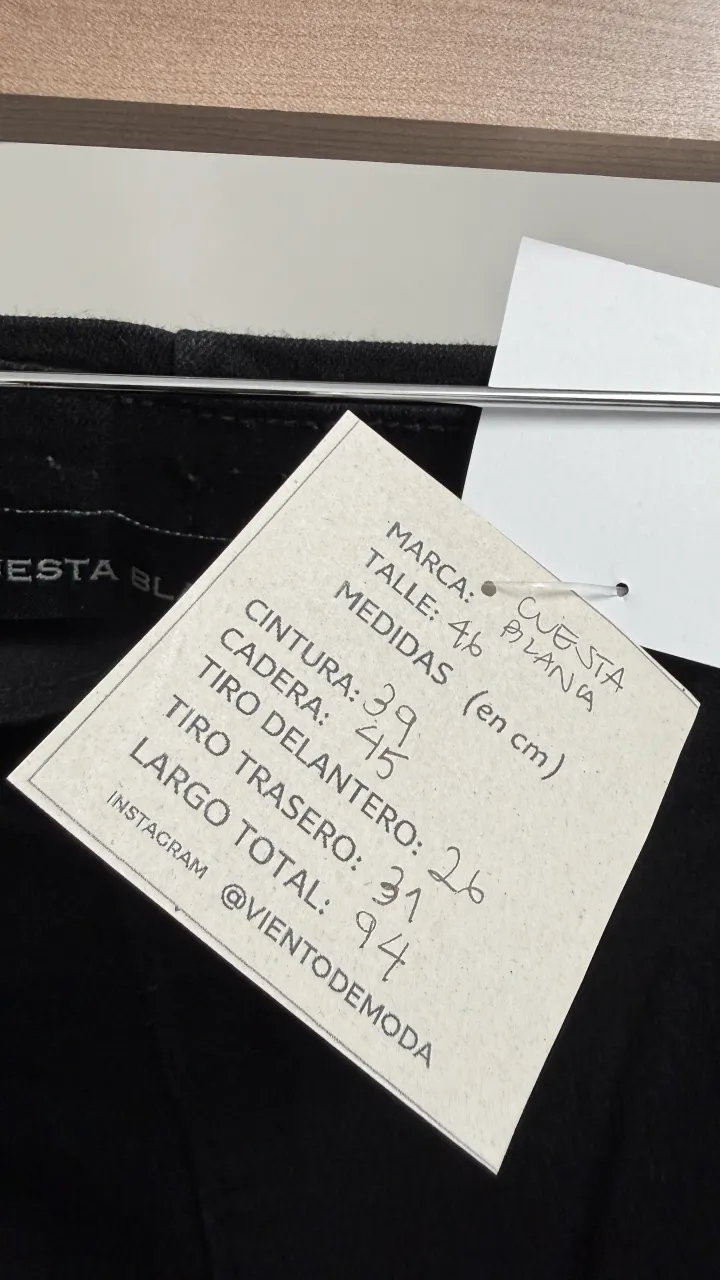 UESTA BL
MARCA: CUESTA
BLANCA
TALLE: 46
MEDIDAS (en cm)
CINTURA: 39
CADERA: 45
TIRO DELANTERO: 26
TIRO TRASERO: 31
LARGO TOTAL: 94
INSTAGRAM @VIENTODEMODA